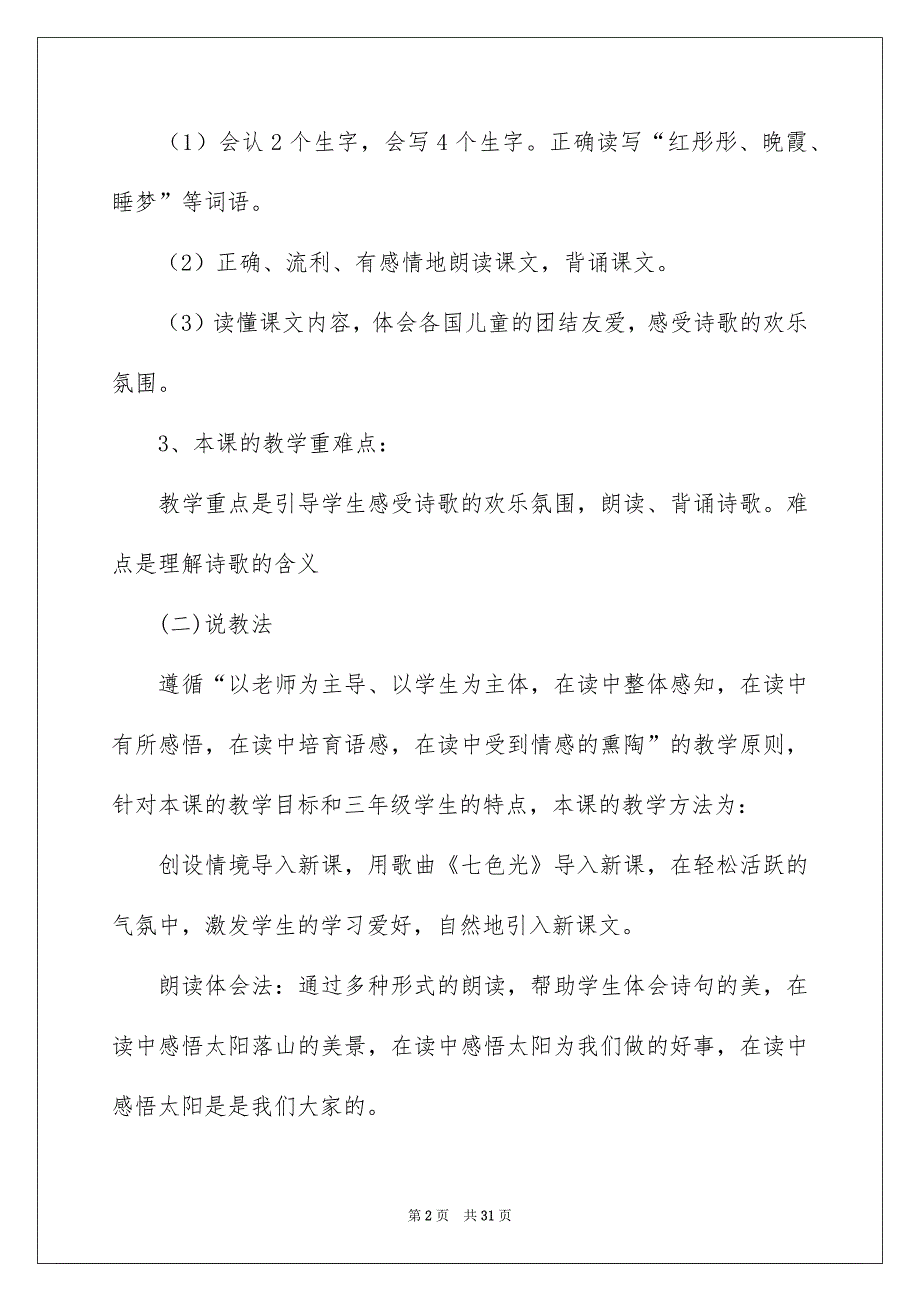 （1）会认 2 个生字，会写 4 个生字。正确读写“红彤彤、晚霞、
睡梦”等词语。
（2）正确、流利、有感情地朗读课文，背诵课文。
（3）读懂课文内容，体会各国儿童的团结友爱，感受诗歌的欢乐
氛围。
3、本课的教学重难点：
教学重点是引导学生感受诗歌的欢乐氛围，朗读、背诵诗歌。难
点是理解诗歌的含义
(二)说教法
遵循“以老师为主导、以学生为主体，在读中整体感知，在读中
有所感悟，在读中培育语感，在读中受到情感的熏陶”的教学原则，
针对本课的教学目标和三年级学生的特点，本课的教学方法为：
创设情境导入新课，用歌曲《七色光》导入新课，在轻松活跃的
气氛中，激发学生的学习爱好，自然地引入新课文。
朗读体会法：通过多种形式的朗读，帮助学生体会诗句的美，在
读中感悟太阳落山的美景，在读中感悟太阳为我们做的好事，在读中
感悟太阳是是我们大家的。
第 2 页 共 31 页